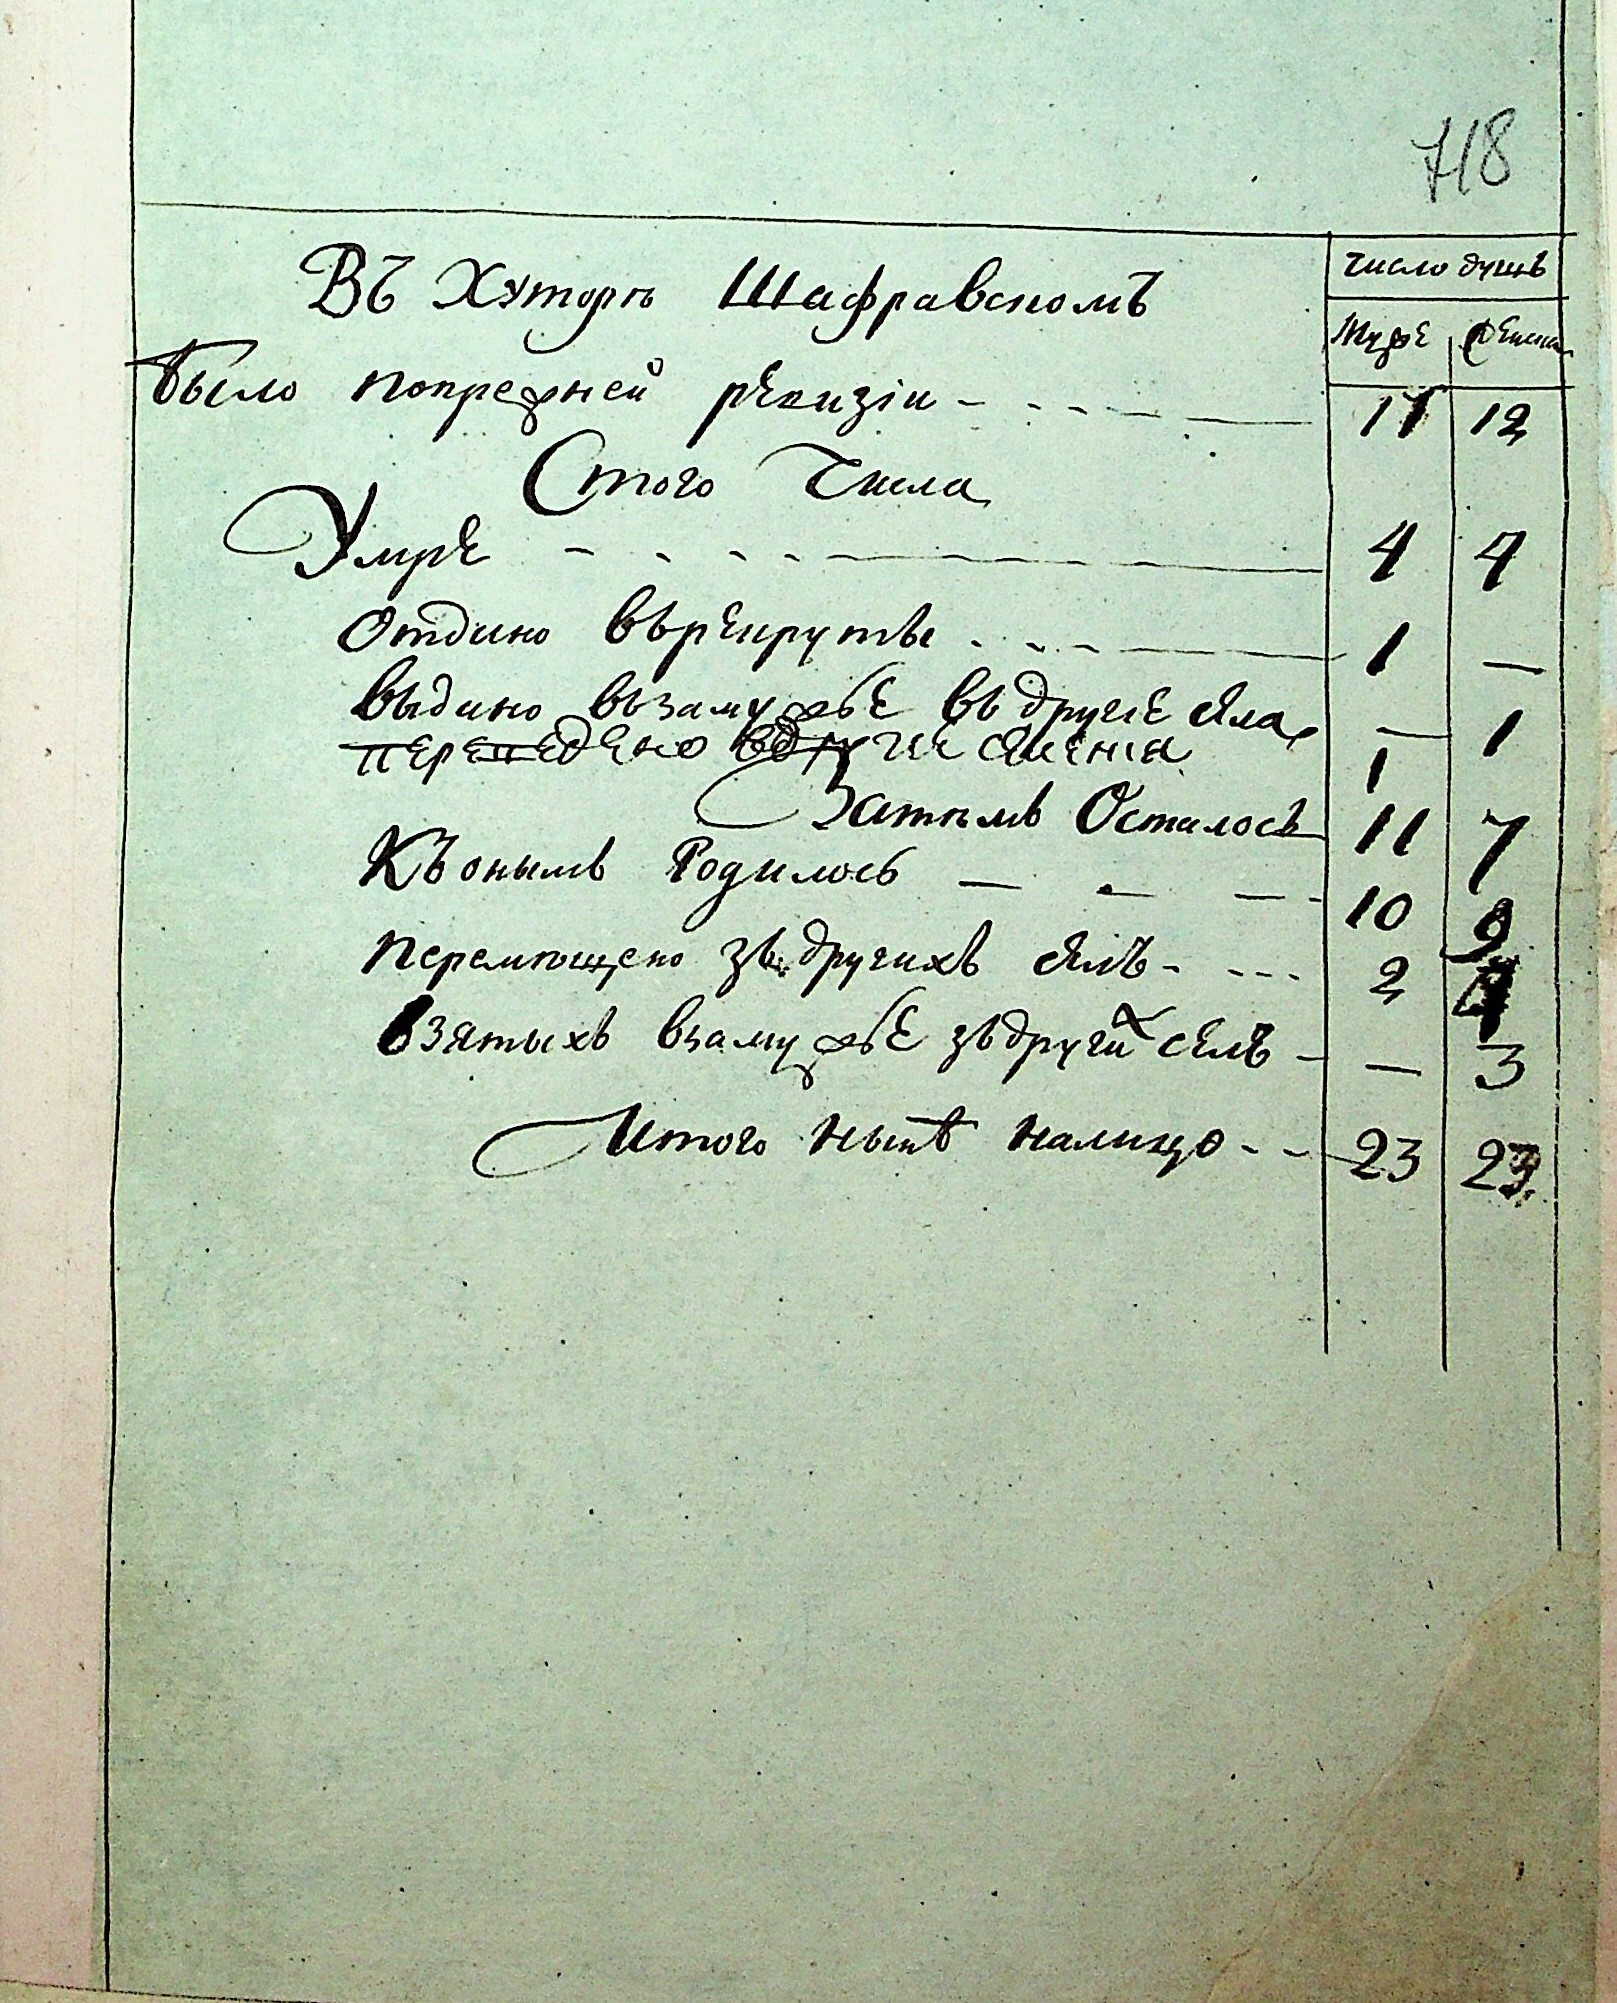 718
Въ Хуторѣ Шафравскомъ
число душъ
Муже Женска
было попрежней ревизіи 17 12
Стого Числа
Умре 4 4
отдано върекруты 1 —
выдано възамужъе въ другіе села — 1
переведено въдругіе селенія 1
Затѣмъ Осталось 11 7
Къ онымъ Родилось — 10 9
перемѣщено зъ другихъ селъ 2 4
взятыхъ взамужъе зъ другихъ селъ — 3
Итого нынѣ налицо 23 23